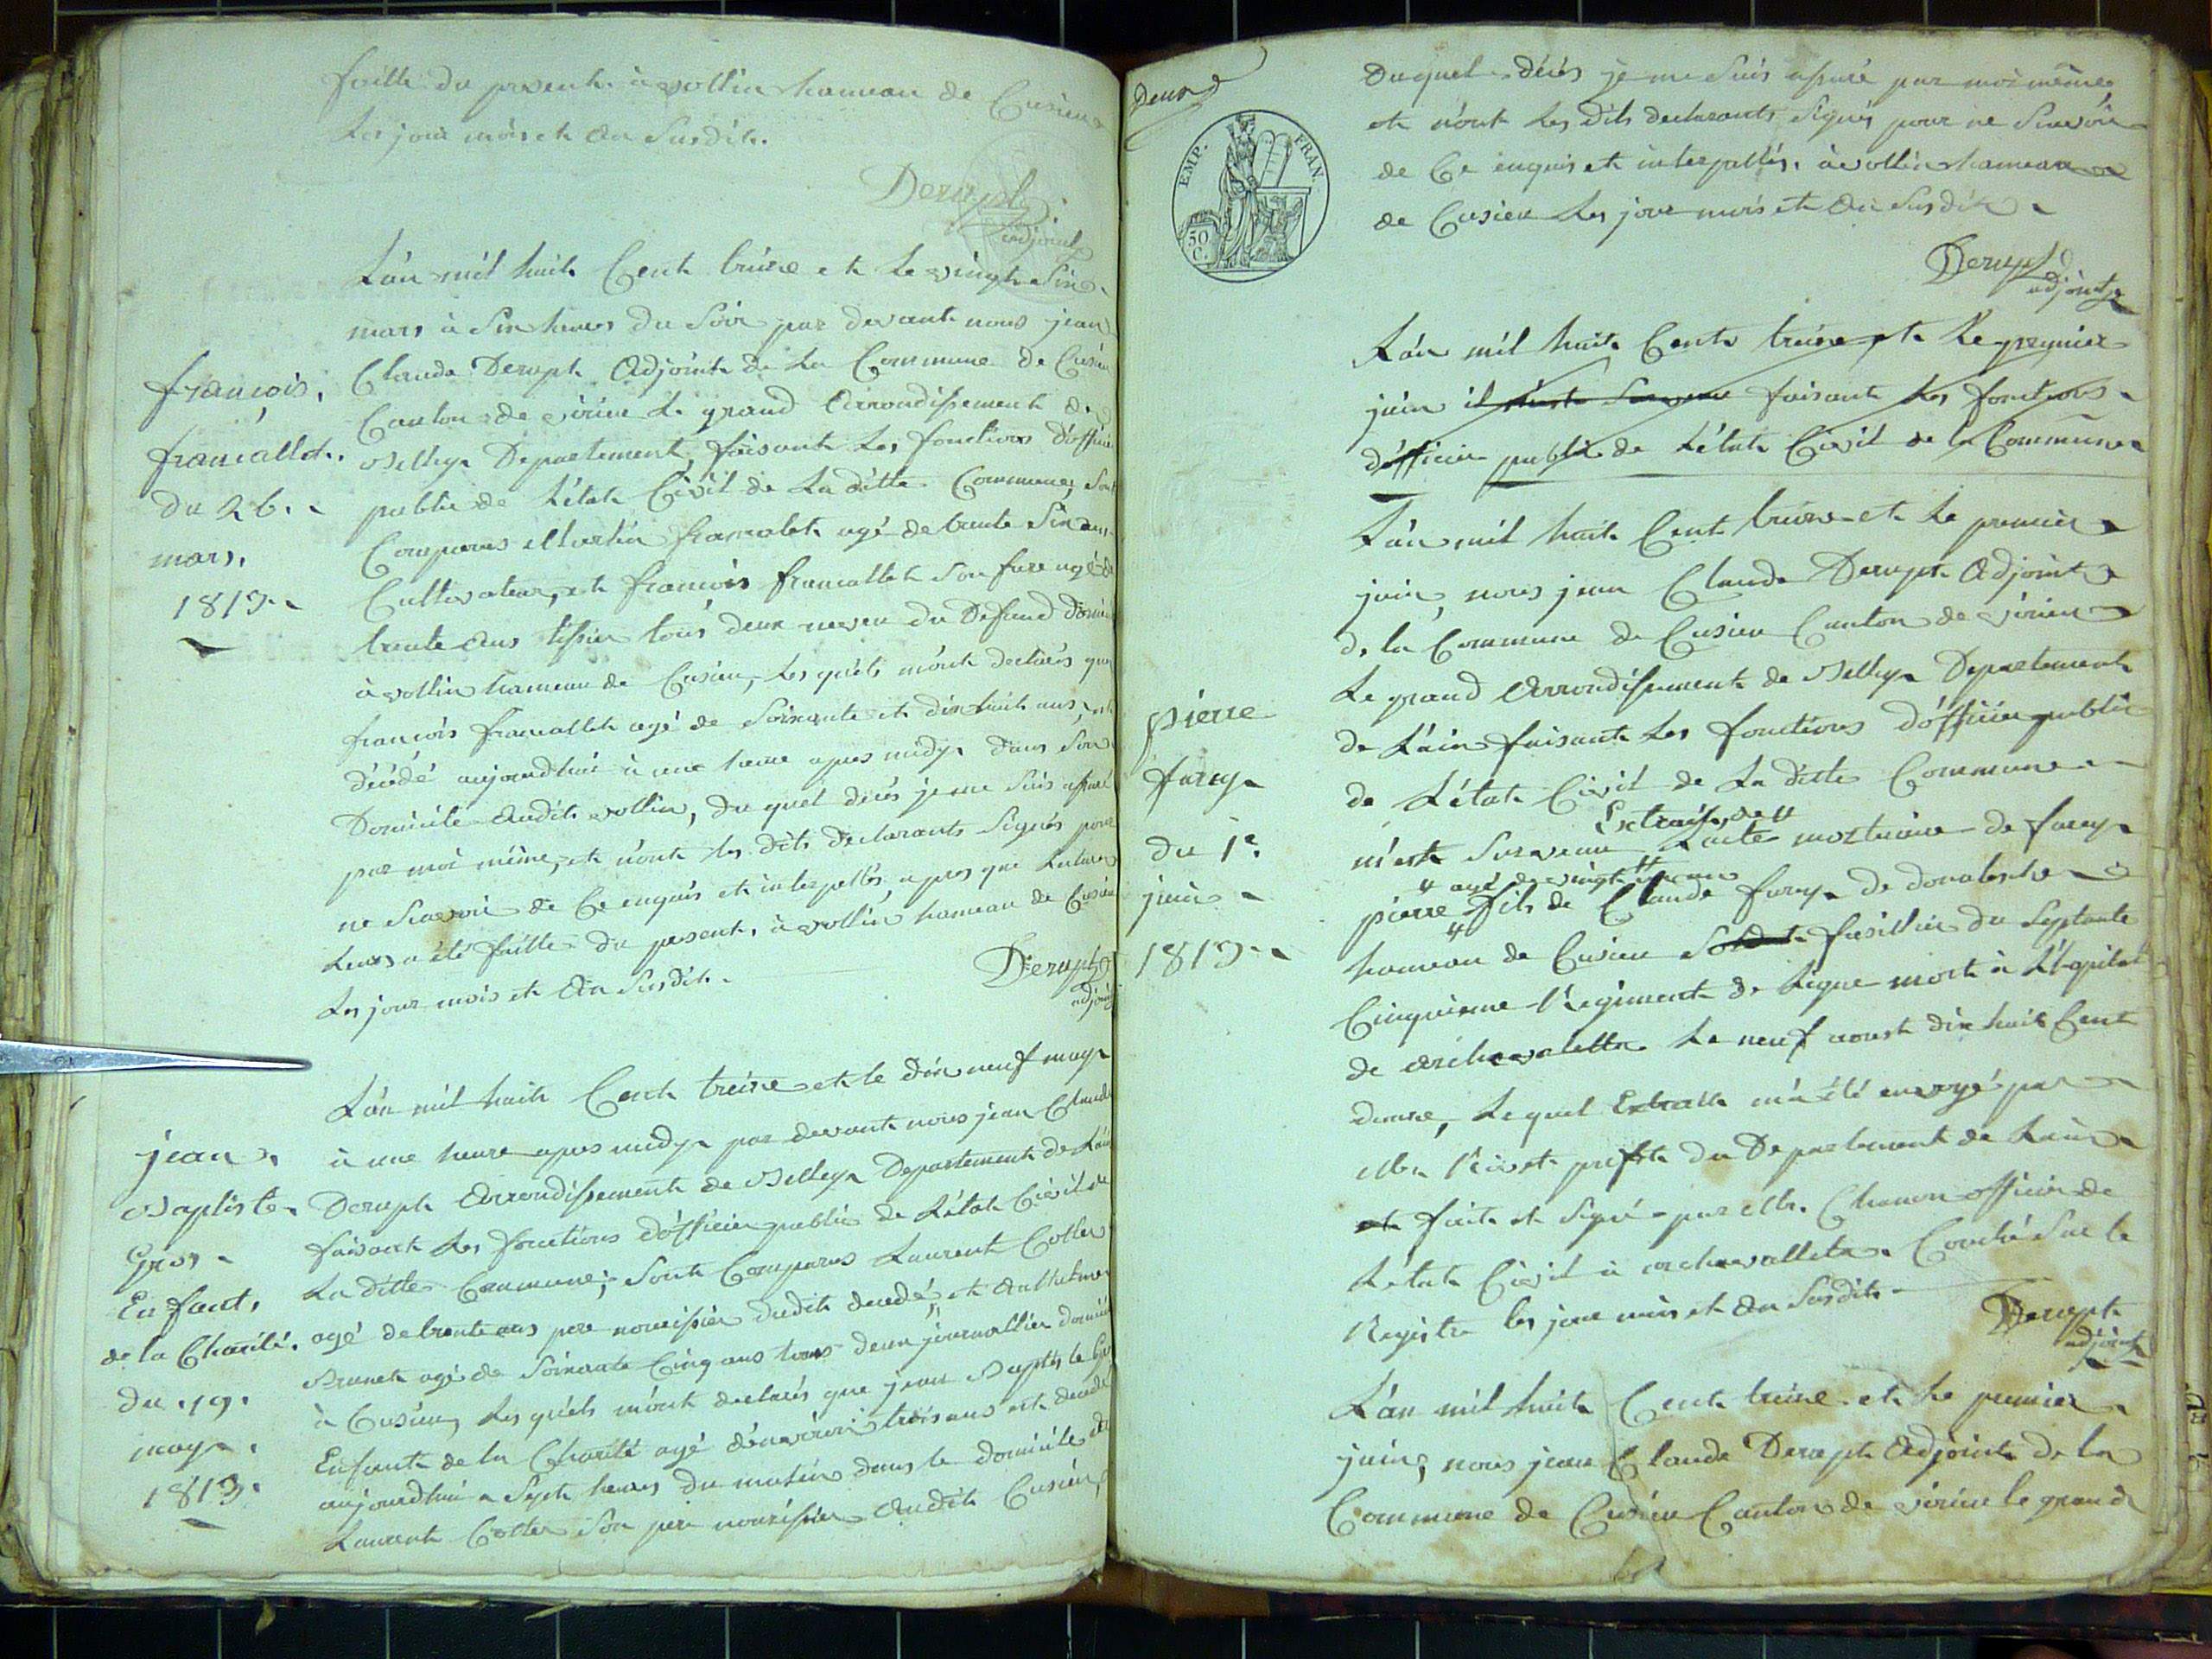 faitte du present. à vollin hameau de Cusieu
Les jour mois et an susdit.
Derupt
adjoint
L'an mil huit Cent treize et le vingt six
mars à six heures du soir par devant nous jean
Claude Derupt Adjoint de la Commune de Cusieu
Canton de virieu le grand Arrondissement de
Belley Departement, faisant les fonctions d'officier
public de L'état Civil de La ditte Commune, Sont
Comparus Martin francallet agé de trente six ans
Cultivateur, et francois francallet son frere agé de
trente ans tissier tous deux neveu du Defund domicil
à vollin hameau de Cusieu, Les quels m'ont declarés que
francois francallet agé de soixante et dix huit ans, est
décédé aujourdhui à une heure apres midy dans son
Domicile Audit vollin, du quel décès je me suis assuré
par moi même, et n'ont les dits declarants signés pour
ne scavoir de Ce enquis et interpellés, apres que Lecture
Leurs a été faitte du present, à vollin hameau de Cusieu
Les jour mois et an susdit.
Derupt
adjoint
françois.
francallet.
du 26.
mars.
1813.
L'an mil huit Cent treize et le dix neuf may
à une heure apres midy par devant nous jean Claude
Derupt Arrondissement de Belley Departement de L'ain
faisant les fonctions d'officier public de L'état Civil de
La ditte Commune; Sont Comparus Laurent Cotter
agé de trente ans pere nourissier dudit decedé, et Anthelme
Brunet agé de soixante Cinq ans tous deux journallier domicil
à Cusieu, Les quels m'ont declarés que jean Baptiste Gros
Enfant de la Charité agé d'environ trois ans est decedé
aujourdhui a sept heures du matin dans le domicile de
Laurent Cotter son pere nourissier Audit Cusieu,
jean
Baptiste
Gros
Enfant,
de la Charité.
du 19.
may.
1813.
Deux
EMP. FRAN.
50
C.
Duquel décés je me suis assuré par moi même,
et n'ont Les dits declarants signés pour ne scavoir
de Ce enquis et interpellés. à vollin hameau
de Cusieu Les jour mois et an susdit
Derupt
adjoint
L'an mil huit Cent treize et le premier
juin il m'est survenu faisant les fonctions
d'officier public de L'état Civil de la Commune
L'an mil huit Cent treize et le premier
juin, nous jean Claude Derupt Adjoint
de la Commune de Cusieu Canton de virieu
Le grand Arrondissement de Belley Departement
de L'ain faisant Les fonctions d'officier public
de L'état Civil de La ditte Commune
Extrait de
m'est survenu L'acte mortuaire de farey
agé de vingt ans
pierre fils de Claude farey de
hameau de Cusieu soldat fusillier du septante
Cinquieme Regiment de Ligne mort à L'hopital
de Le neuf aoust dix huit Cent
douze, Le quel Extrait m'a été envoyé par
Mr Rivet prefet du Departement de L'ain
et fait et signé par Mr. Chanon officier de
L'état Civil à Couché sur le
Registre les jour mois et an susdit
Derupt
adjoint
pierre
farey
du 1er
juin
1813.
L'an mil huit Cent treize et le premier
juin, nous jean Claude Derupt Adjoint de la
Commune de Cusieu Canton de virieu le grand